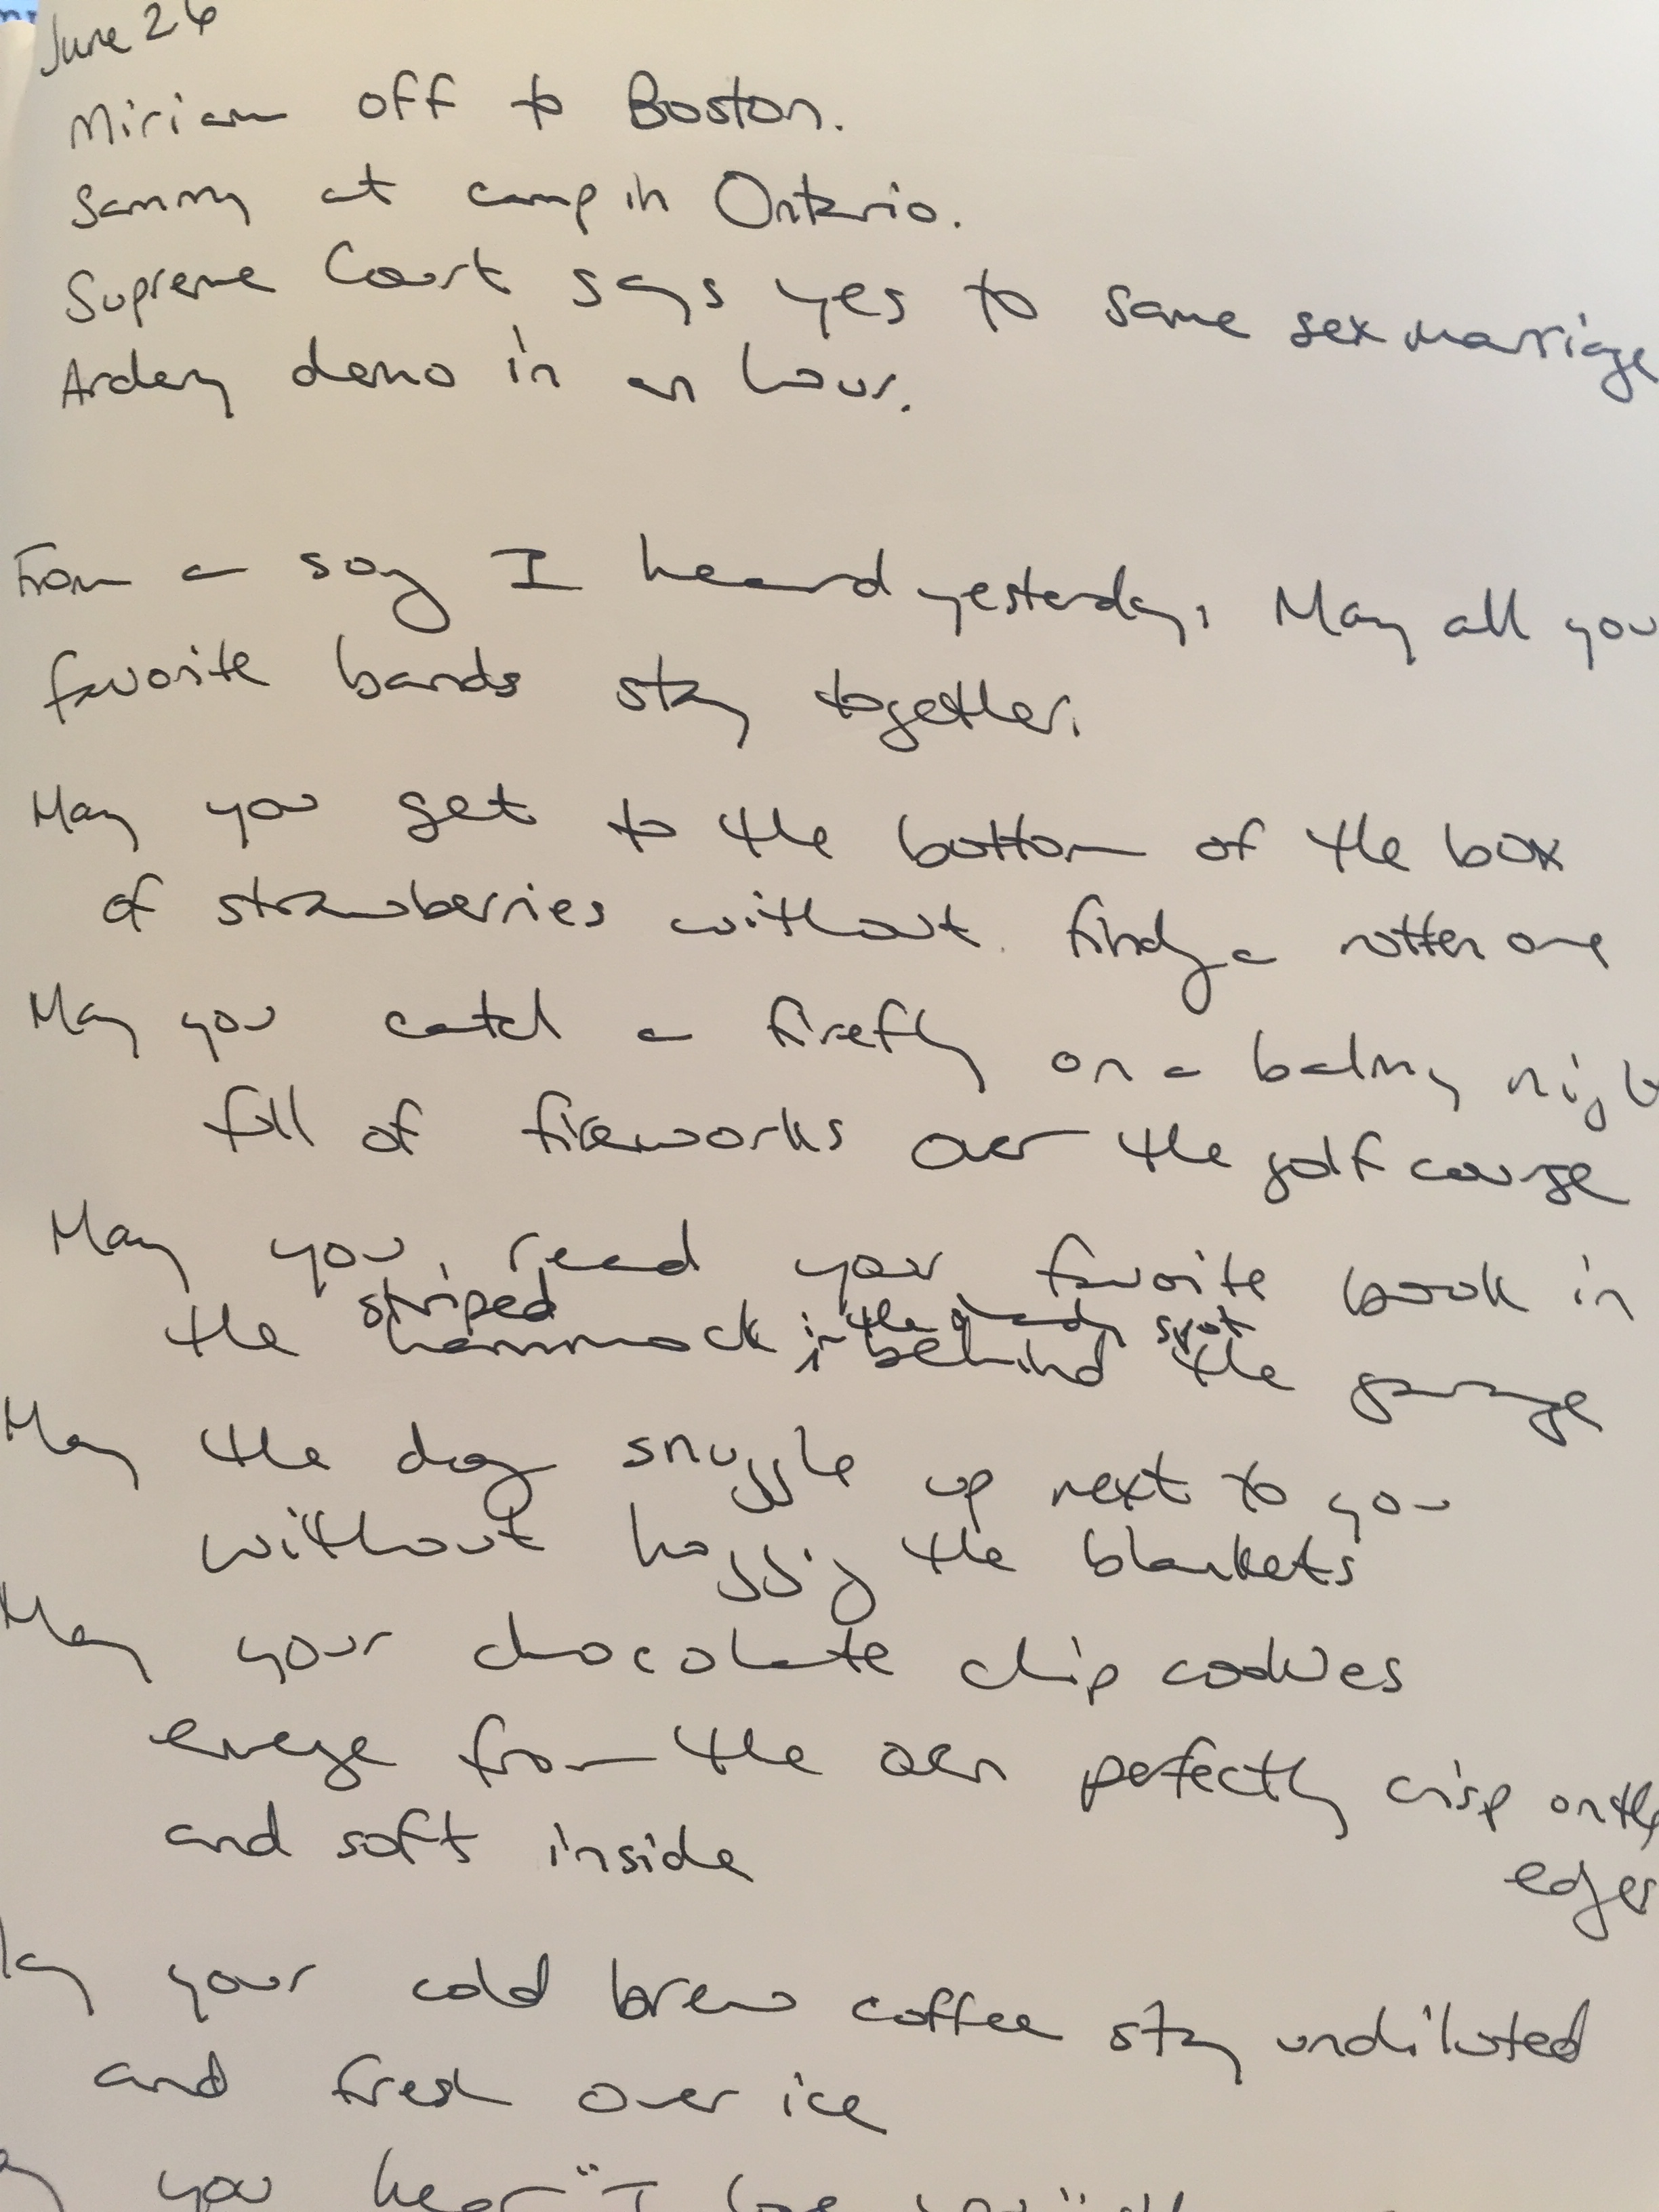 June 26
Miriam off to Boston.
Sammy at camp in Ontario.
Supreme Court says yes to same sex marriage
Arden demo in an hour.
From a song I heard yesterday, May all you
favorite bands stay together.
May you get to the bottom of the box
of strawberries without finding a rotten one
May you catch a firefly on a balmy nigh
full of fireworks over the golf course
May you read your favorite book in
striped in the shady spot
the hammock behind the garage
May the dog snuggle up next to you
without hogging the blankets
May your chocolate chip cookies
emerge from the oven perfectly crisp on the
edges
and soft inside
May your cold brew coffee stay undiluted
and fresh over ice
you hear "I love you"